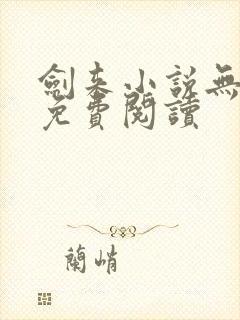 劍来小説無
免費閱讀
蘭峭